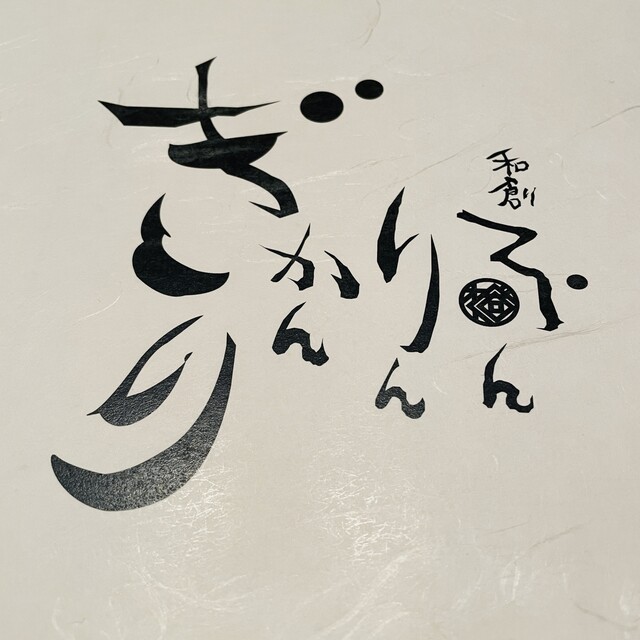 和創り
ぶん
りん
かん
ぎり